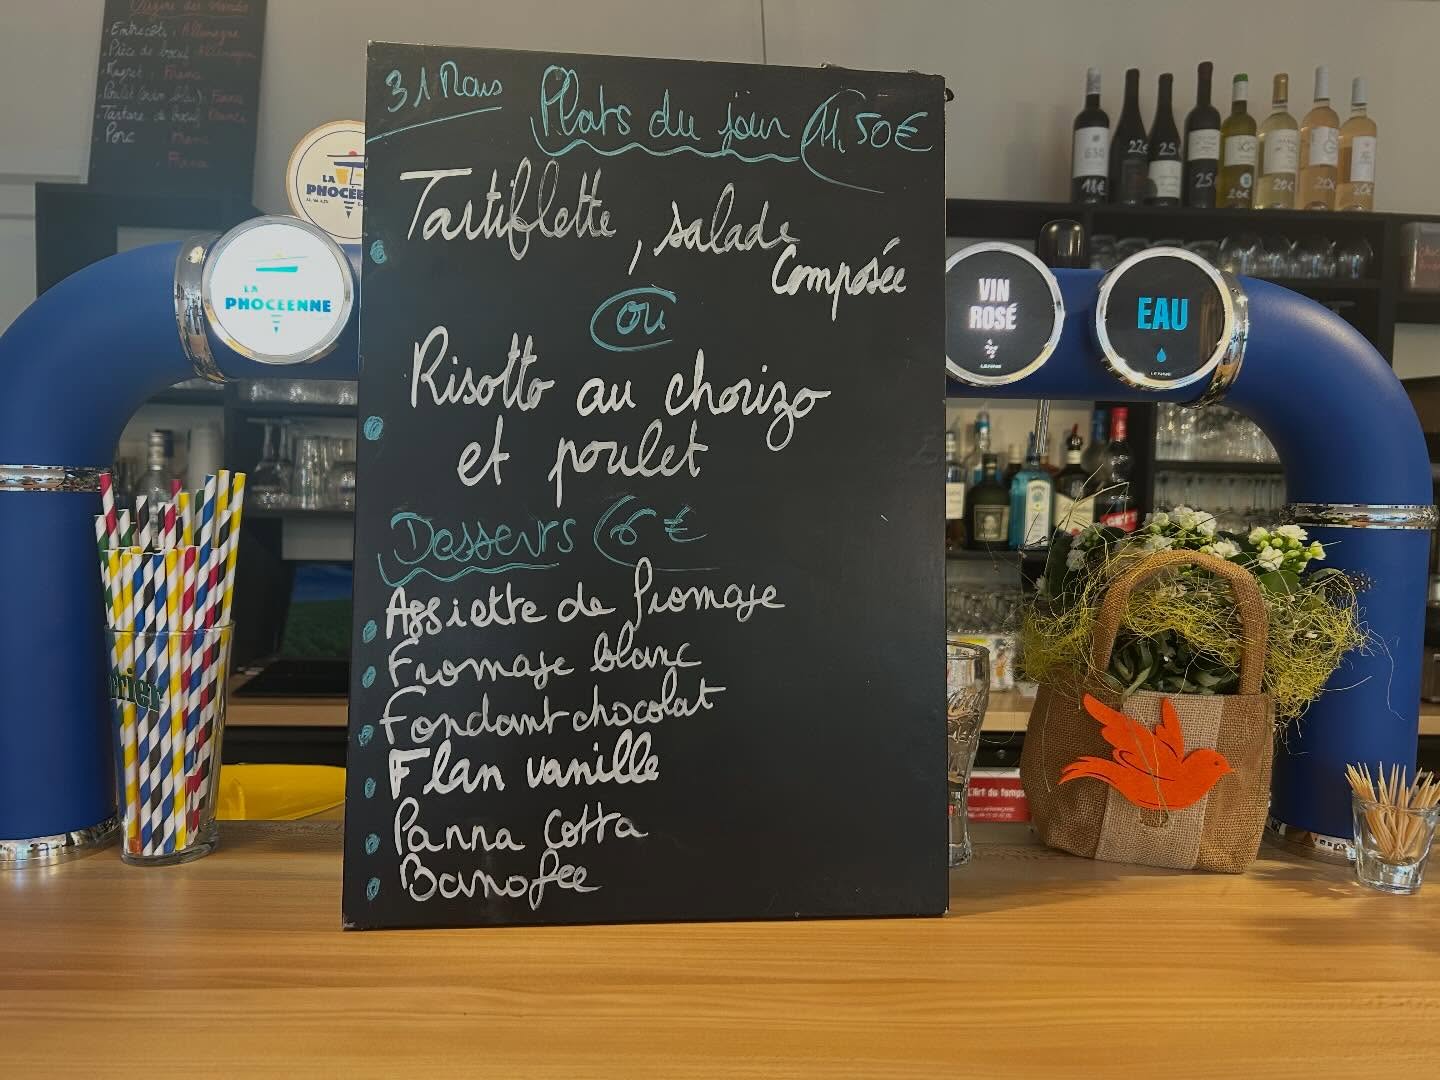 Origine des viandes
Entrecôte : Allemagne
Pièce de boeuf : Allemagne
Magret : France
Tartare de boeuf France
Porc France
France
31 Mars
Plats du jour 11,50€
Tartiflette, salade
composée
ou
Risotto au chorizo
et poulet
Desserts 6€
Assiette de fromage
Fromage blanc
Fondant chocolat
Flan vanille
Panna Cotta
Banofee
LA
PHOCÉENNE
LA
PHOCÉENNE
VIN
ROSÉ
EAU
18€
22€
25
25
20€
20€
20€
20€
L'Art du temps